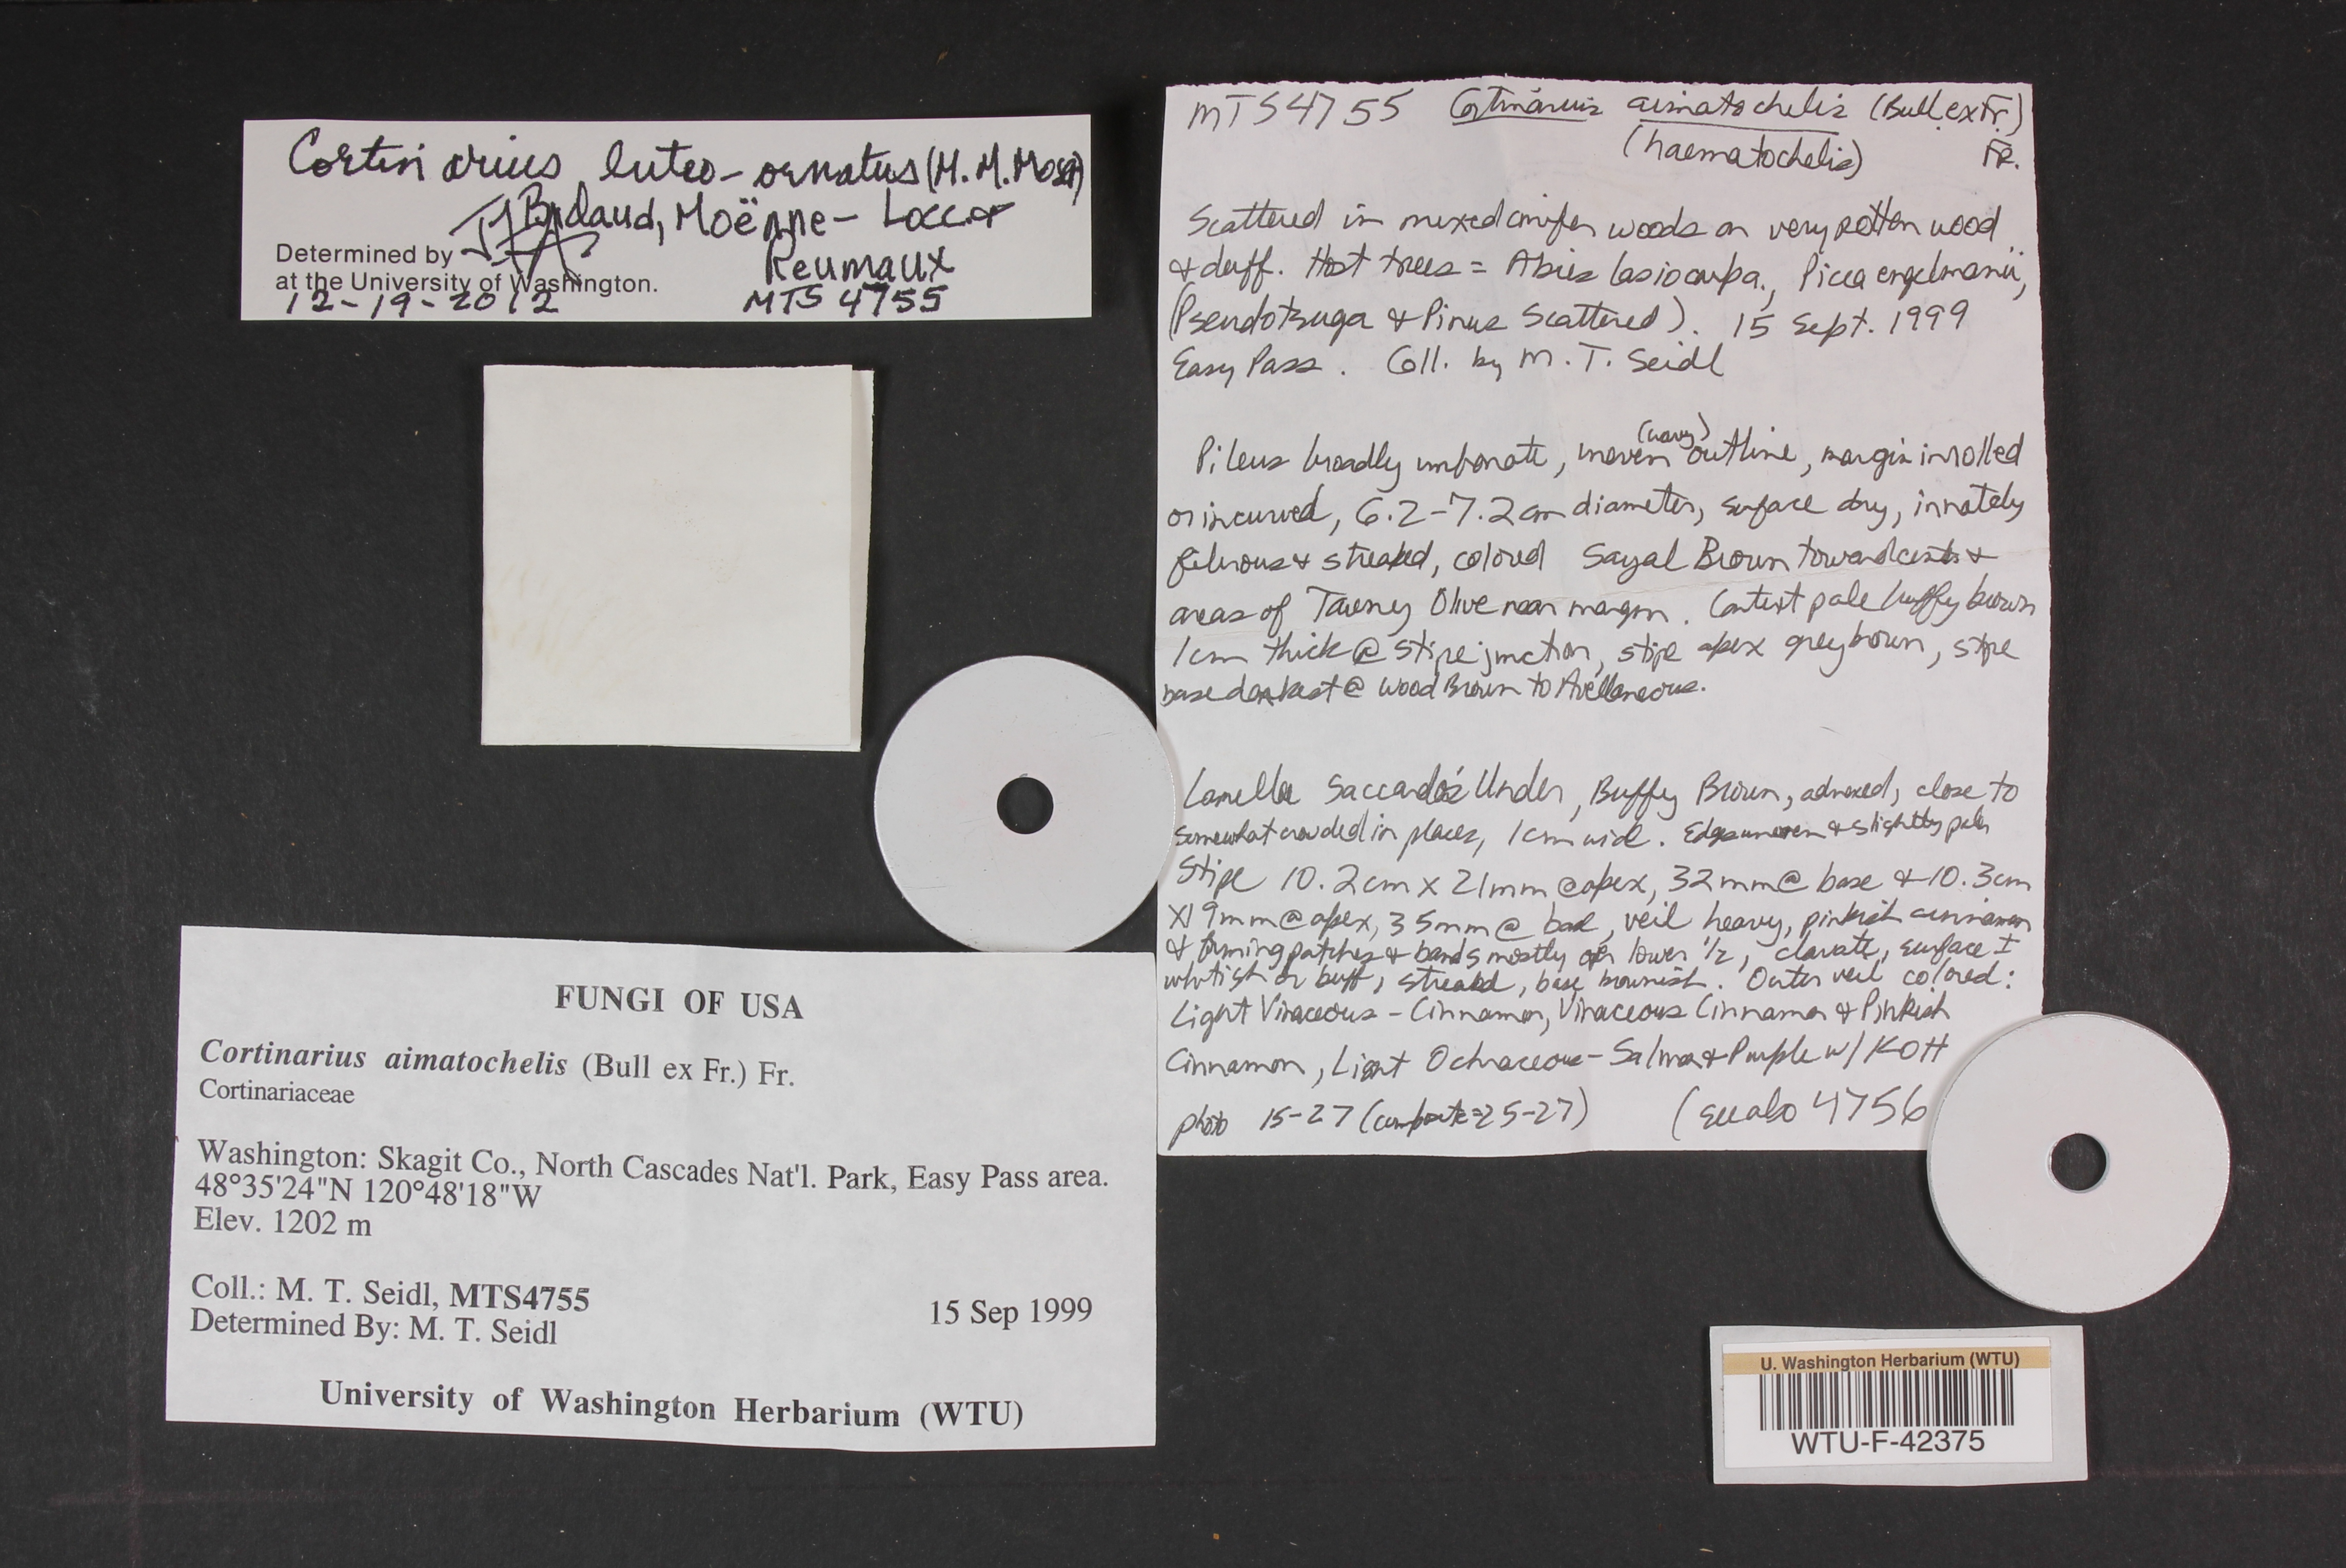 Cortinarius luteo-ornatus (M.M.Moser)
Bidaud, Moënne-Loccoz
Determined by
Reumaux
at the University of Washington.
12-19-2012 MTS 4755
MTS4755 Cortinarius aimatochelis (Bull. ex Fr.)
(haematochelis) Fr.
Scattered in mixed conifer woods on very rotten wood
& duff. Host trees = Abies lasiocarpa., Picea engelmanii,
(Pseudotsuga & Pinus Scattered). 15 Sept. 1999
Easy Pass. Coll. by M. T. Seidl
Pileus broadly umbonate, uneven (wavy) outline, margin inrolled
or incurved, 6.2-7.2cm diameter, surface dry, innately
fibrous & streaked, colored Sayal Brown toward center &
areas of Tawney Olive near margin. Context pale buffy brown
1cm thick @ stipe junction, stipe apex grey brown, stipe
base darkest @ Wood Brown to Avellaneous.
Lamellae Saccardo's Umber, Buffy Brown, adnexed, close to
somewhat crowded in places, 1cm wide. Edges uneven & slightly paler
Stipe 10.2cm x 21mm @ apex, 32mm @ base & 10.3cm
x19mm @ apex, 35mm @ base, veil heavy, pinkish cinnamon
& forming patches & bands mostly on lower 1/2, clavate, surface ±
whitish or buff, streaked, base brownish. Outer veil colored:
Light Vinaceous-Cinnamon, Vinaceous Cinnamon & Pinkish
Cinnamon, Light Ochraceous-Salmon & Purple w/ KOH
photo 15-27 (composite=25-27) (see also 4756
FUNGI OF USA
Cortinarius aimatochelis (Bull ex Fr.) Fr.
Cortinariaceae
Washington: Skagit Co., North Cascades Nat'l. Park, Easy Pass area.
48°35'24"N 120°48'18"W
Elev. 1202 m
Coll.: M. T. Seidl, MTS4755
15 Sep 1999
Determined By: M. T. Seidl
University of Washington Herbarium (WTU)
U. Washington Herbarium (WTU)
WTU-F-42375